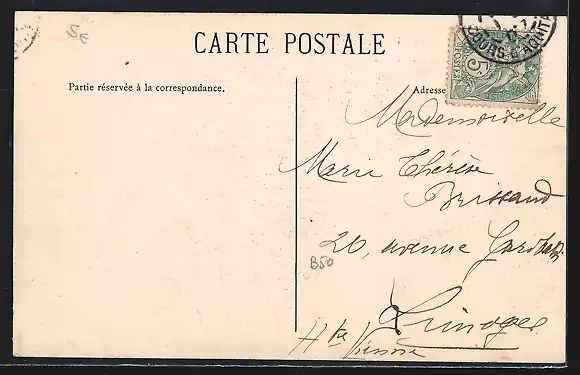 5E
CARTE POSTALE
BOURG-D'AQUITA
5
Partie réservée à la correspondance.
Adresse
Mademoiselle
Marie Thérèse
Brissaud
20, avenue Garibaldi
B50
Limoges
Hte Vienne